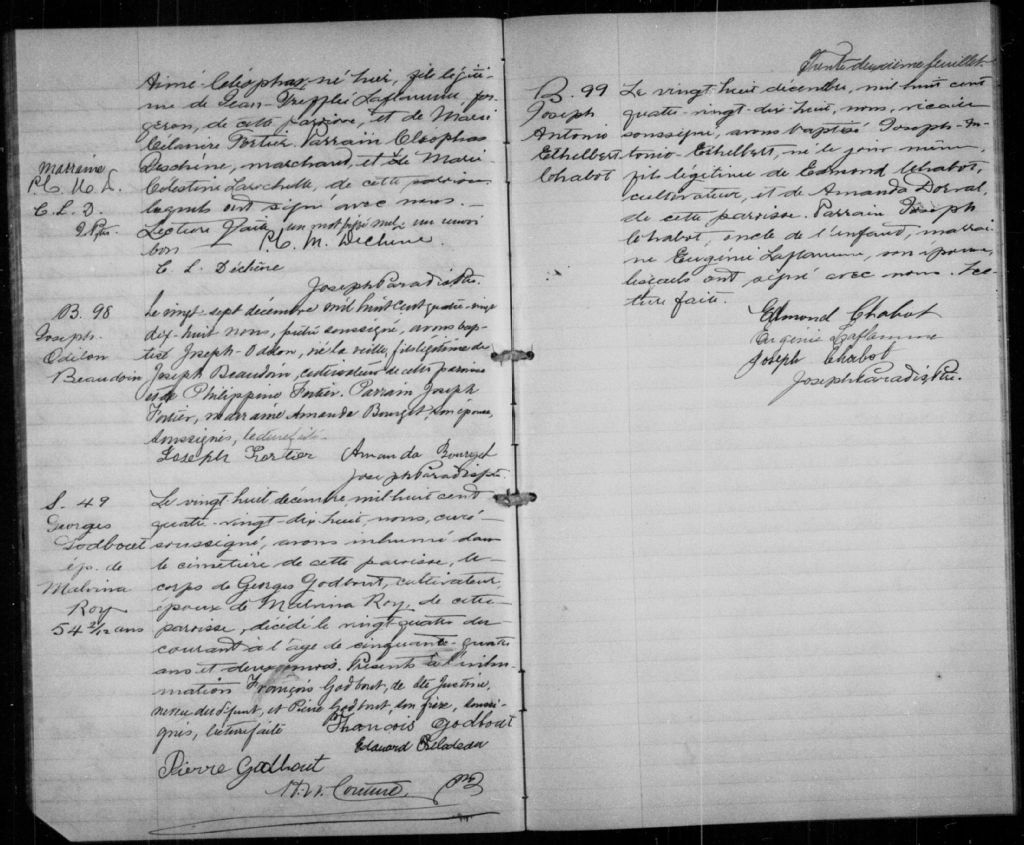 Aimé Cléophas né hier, fils légiti-
me de Jean Laflamme for-
geron, de cette paroisse, et de Marie
Fortier Parrain Cléophas
Marraine
Deschène, marchand, et de Marie
M.
Célestine Larochelle, de cette paroisse
C. L. D.
lesquels ont signé avec nous. —
J. P. ptre.
Lecture faite un mot rayé nul, un renvoi
bon M. Dechène
C L. Déchêne
Joseph Paradis Ptre.
B. 98
Joseph
Odilon
Beaudoin
Le vingt-sept décembre mil huit cent quatre-vingt
dix-huit nous, prêtre soussigné, avons bap-
tisé Joseph-Odilon, né la veille, fils légitime de
Joseph Beaudoin, cultivateur de cette paroisse
et de Philippine Fortier. Parrain Joseph
Fortier, marraine Amanda Bourget, son épouse,
soussignés, lecture faite.
Joseph Fortier Amanda Bourget
Joseph Paradis ptre.
S. 49
Georges
Godbout
ép. de
Malvina
Roy
54 2/12 ans
Le vingt huit décembre, mil huit cent
quatre-vingt-dix-huit nous, curé
soussigné, avons inhumé dans
le cimetière de cette paroisse, le
corps de Georges Godbout, cultivateur,
époux de Malvina Roy, de cette
paroisse, décédé le vingt quatre du
courant à l'age de cinquante-quatre
ans et deux mois. Présents à l'inhu-
mation François Godbout, de Ste Justine,
neveu du défunt, et Pierre Godbout, son frère, soussi-
gnés, lecture faite François Godbout
Edouard
Pierre Godbout
Couture Ptre
Trente deuxième feuillet
B. 99
Joseph
Antonio
Ethelbert
Chabot
Le vingt huit décembre, mil huit cent
quatre-vingt-dix-huit, nous, vicaire
soussigné, avons baptisé Joseph-An-
tonio-Ethelbert, né le jour même,
fils légitime de Edmond Chabot,
cultivateur, et de Amanda Dorval,
de cette paroisse. Parrain Joseph
Chabot, oncle de l'enfant, marrai-
ne Eugénie Laflamme, son épouse,
lesquels ont signé avec nous. Lec-
ture faite.
Edmond Chabot
Eugénie Laflamme
Joseph Chabot
Joseph Paradis Ptre.